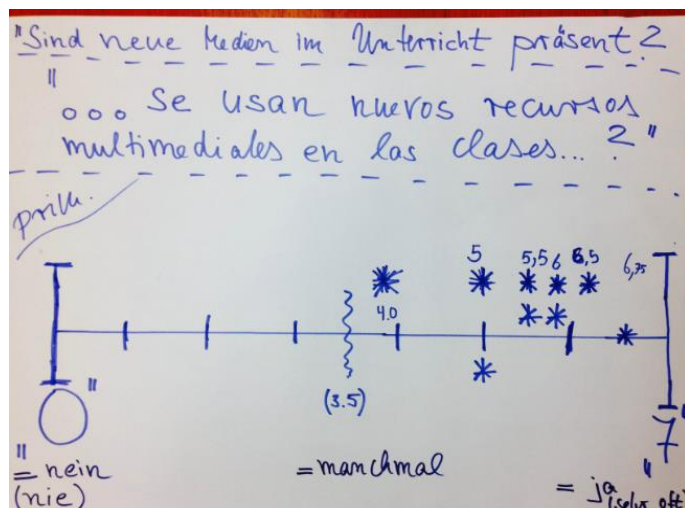 "Sind neue Medien im Unterricht präsent?
"... Se usan nuevos recursos
multimediales en las clases...?"
prim.
5 5,5 6 6,5 6,75
4.0
(3.5)
"0" "7"
= nein = manchmal = ja
(nie) (sehr oft)